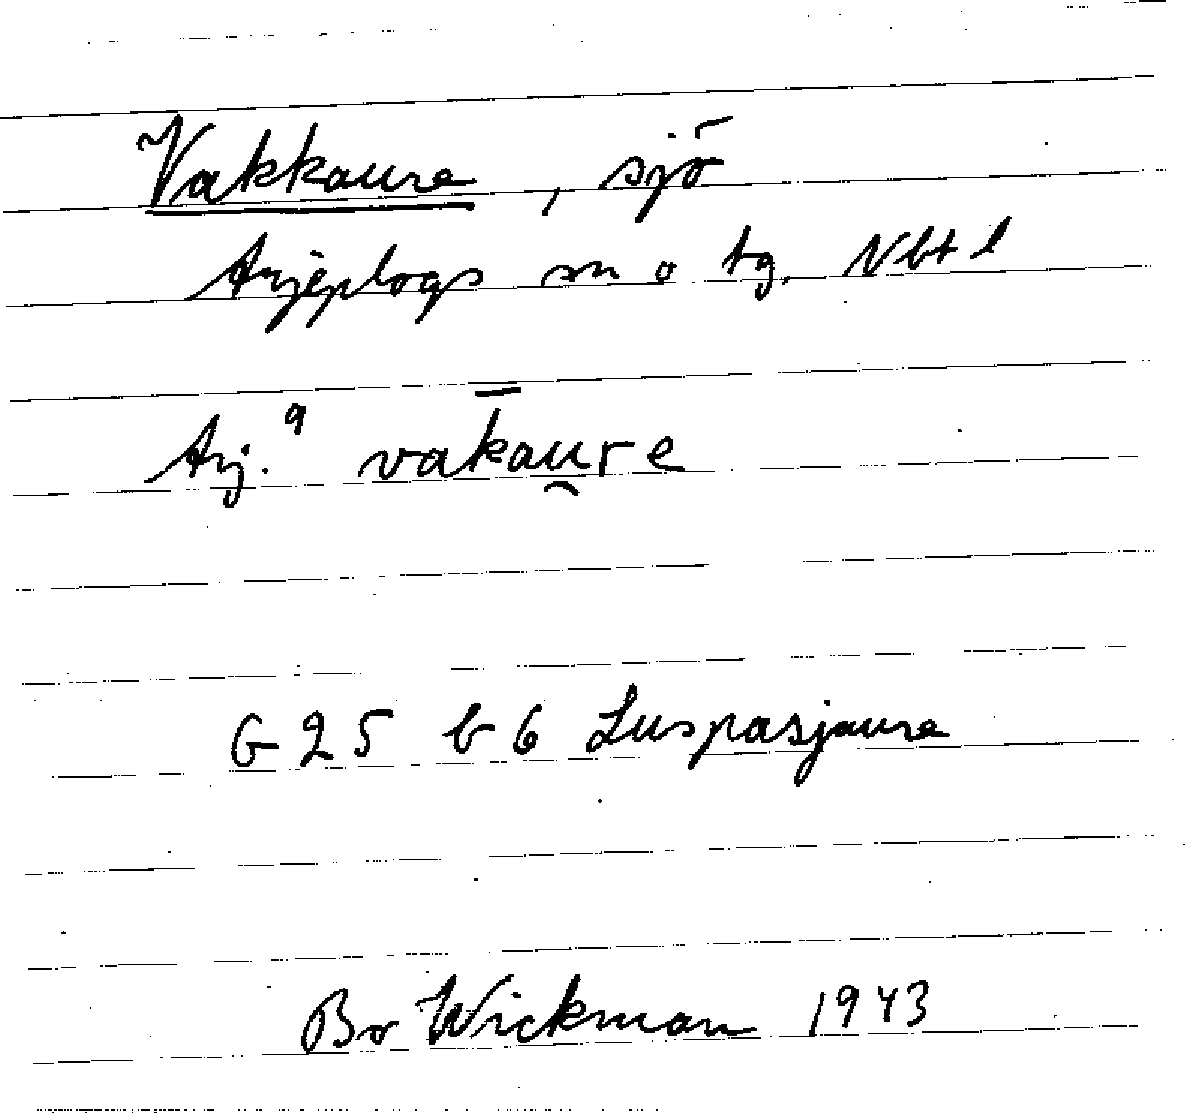 Vakkaure, sjö
Arjeplogs sn o tg. Nbt l
Arj.⁹ vak̄au̯re
G 25 b 6 Luspasjaure
Bo Wickman 1943